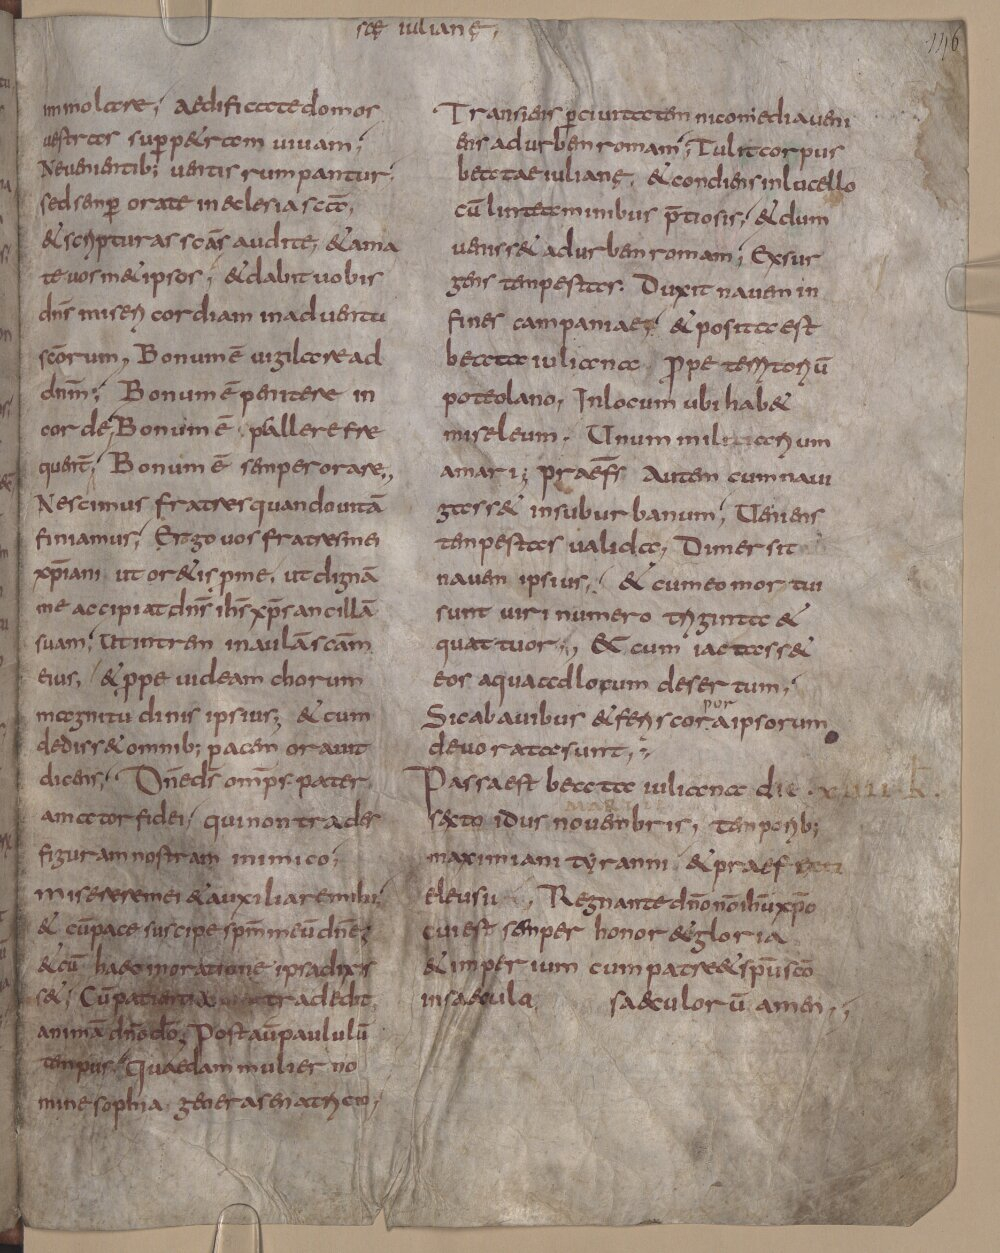 scę iulianę,
116
immolare; Aedificate domos
uestras sup petram uiuam;
Ne uenientib; uentis rumpantur;
sed semp orate in eclesia scā,
& scripturas scās audite, & ama
te uos m&ipsos; & dabit uobis
dn̄s misericordiam in aduentu
scōrum, Bonum ē uigilare ad
dn̄m; Bonum ē penitere in
corde, Bonum ē psallere fre
quent̄; Bonum ē semper orare,,
Nescimus fratres quando uitā
finiamus; Ergo uos fratres mei
xp̄iani ut or&is p me, ut dignā
me accipiat dn̄s ih̄s xp̄s ancillā
suam, Ut intrem in aulā scām
eius, & ppe uideam chorum
magnitudinis ipsius; & cum
dediss& omnib; pacem orauit
dicens; Dn̄e ds̄ om̄ps pater
amator fidei, qui non trades
figuram nostram inimico;
Miserere mei & auxiliare mihi;
& cū pace suscipe sp̄m meū dn̄e;
& cū haec in oratione ipsa dixis
s&; Cū patientia tradedit
animā dn̄o dō; Post aū paululū
tempus Quaedam mulier no
mine sophia generasenatrico,
Transiens p ciuitatem nicomedia ueni
ens ad urbem romam; Tulit corpus
beatae iulianę, & condiens in lucello
cū linteaminibus p̄tiosis; & dum
ueniss& ad urbem romam; Exsur
gens tempestas. Duxit nauem in
fines campaniae; & posita est
beata iuliana ppe territoriū
poteolano, In locum ubi hab&
miseleum. Unum miliarium
a mari; praefs̄ Autem cum naui
gass& in suburbanum; Ueniens
tempestas ualida, Dimersit
nauem ipsius; & cum eo mortui
sunt uiri numero triginta &
quattuor;, Et cum iactass&
eos aqua ad locum desertum;
Sic ab auibus & feris corpora ipsorum
deuorata sunt,;
Passa est beata iuliana die xiiii k̄.
sexto idus nouembris, temporib;
maximiani tyranni & praef
eleusii, Regnante dn̄o nō ihū xp̄o
cui est semper honor & gloria
& imperium cum patre & sp̄u scō
in saecula saeculorū amen,;